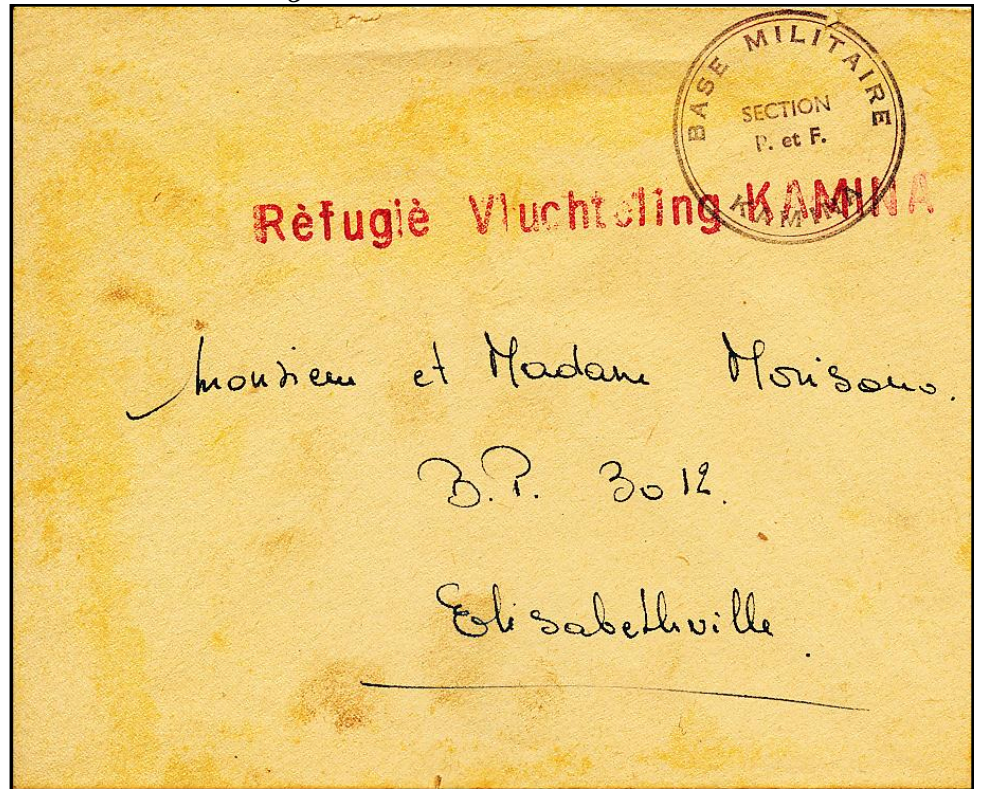 BASE MILITAIRE
SECTION
P. et F.
KAMINA
Rèfugiè Vluchteling KAMINA
Monsieur et Madame Morisono.
B.P. 3012.
Elisabethville.